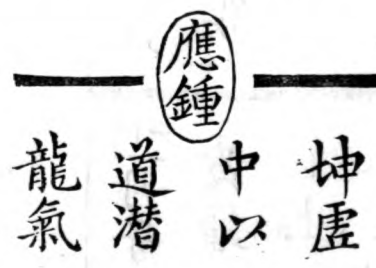 應鍾
坤虛
中以
道潛
龍氣